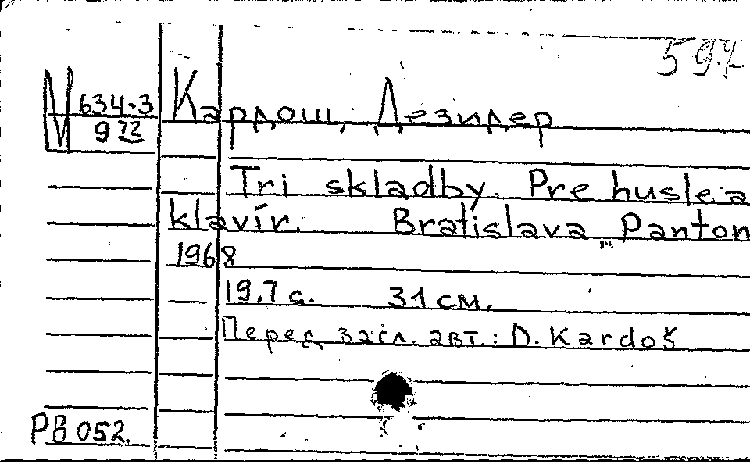 597
М 634-3 Кардош, Дезидер
9 22
Tri skladby. Pre husle a
klavír. Bratislava, Panton
1968
19.7 с. 31 см.
Перед загл. авт.: D. Kardoš
РВ 052.